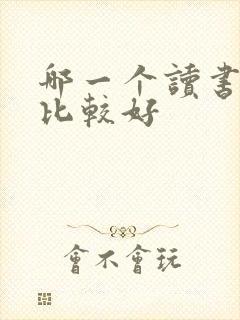 哪一个讀書
比較好
會不會玩